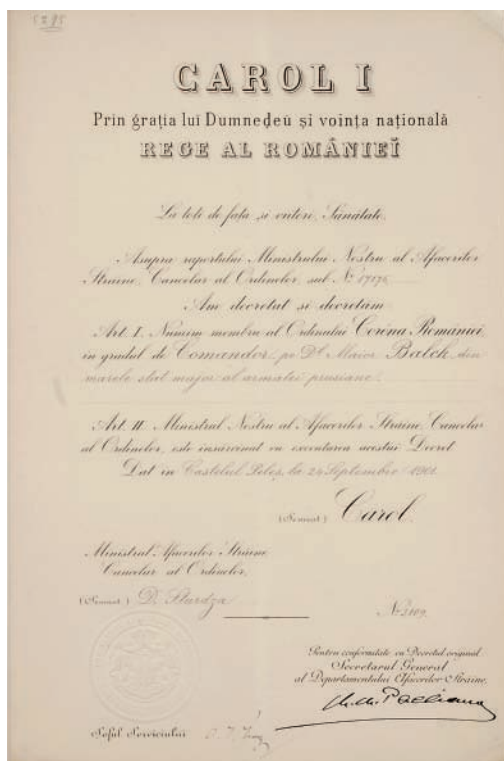 5295
CAROL I
Prin grația lui Dumnedeŭ și voința națională
REGE AL ROMÂNIEĬ
La toti de fața și viitori, Sănătate.
Asupra raportului Ministrului Nostru al Afacerilor
Straine, Cancelar al Ordinelor, sub No 17176
Am decretat si decretăm
Art. I. Numim membru al Ordinului Coróna Romaniei,
in gradul de Comandor, pe Dl Maior Balck, din
marele stat major al armatei prusiane.
Art. II. Ministrul Nostru al Afacerilor Straine, Cancelar
al Ordinelor, este insărcinat cu executarea acestui Decret.
Dat in Castelul Peleș, la 24 Septembrie 1901.
(Semnat) Carol.
Ministrul Afacerilor Straine
Cancelar al Ordinelor,
(Semnat) D. Sturdza
No 3109.
Pentru conformitate cu Decretul original
Secretarul General
al Departamentului Afacerilor Straine,
Șeful Serviciului